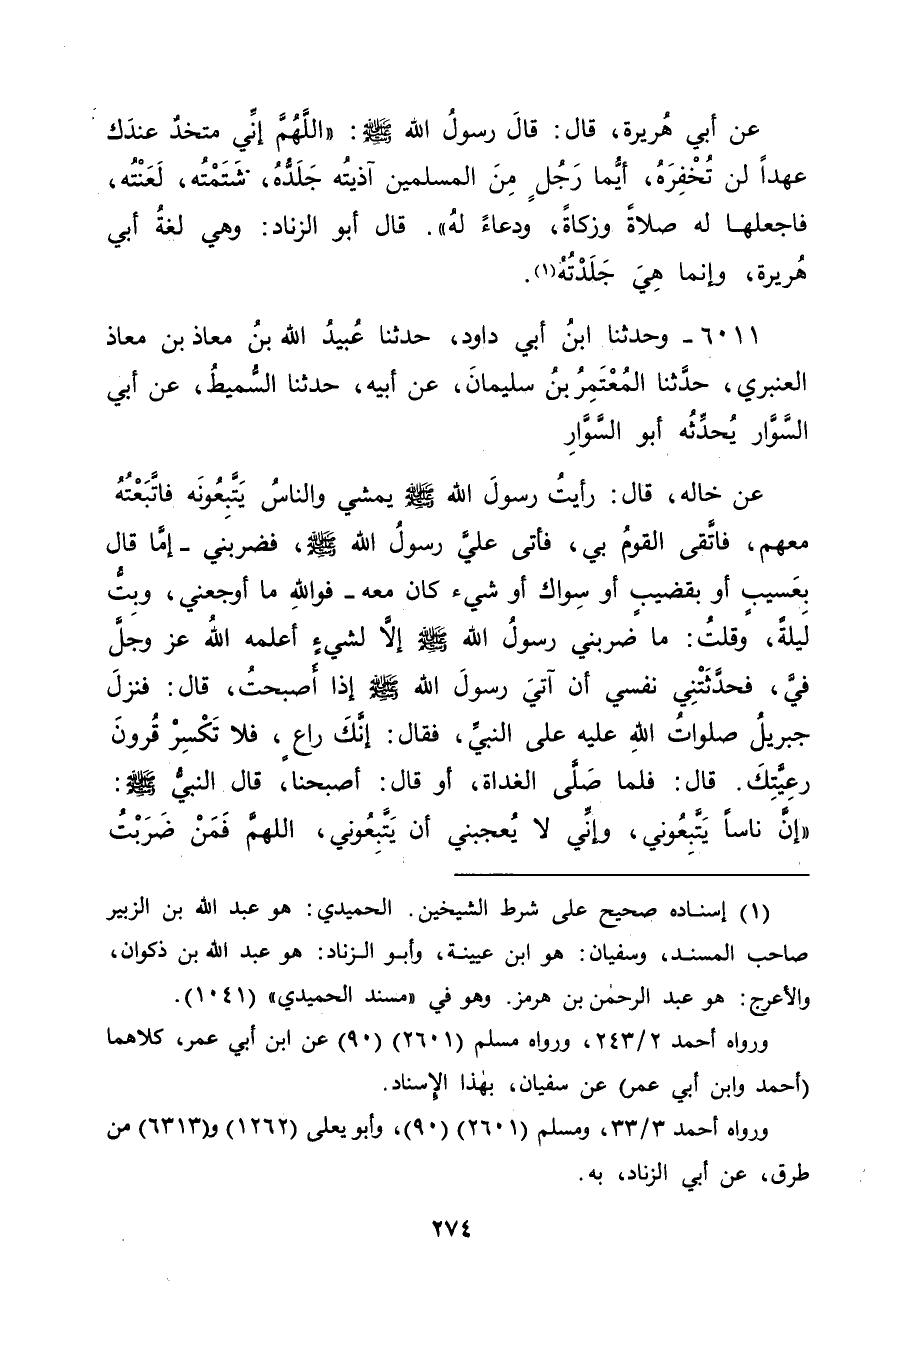 عن أبي هُريرة، قال: قالَ رسولُ الله ﷺ: «اللَّهُمَّ إنِّي متخذٌ عندَك
عهداً لن تُخْفِرَهُ، أيُّما رَجُلٍ مِنَ المسلمين آذيتُه جَلَدُّهُ، شَتَمْتُه، لَعَنْتُه،
فاجعلهـا له صلاةً وزكاةً، ودعاءً لهُ». قال أبو الزناد: وهي لغةُ أبي
هُريرة، وإنما هِيَ جَلَدْتُهُ(١).
٦٠١١ ـ وحدثنا ابنُ أبي داود، حدثنا عُبيدُ الله بنُ معاذ بن معاذ
العنبري، حدَّثنا المُعْتَمِرُ بنُ سليمانَ، عن أبيه، حدثنا السُّميطُ، عن أبي
السَّوَّار يُحدِّثُه أبو السَّوَّارِ
عن خاله، قال: رأيتُ رسولَ الله ﷺ يمشي والناسُ يَتَّبِعُونَه فاتَّبَعْتُهُ
معهم، فاتَّقى القومُ بي، فأتى عليَّ رسولُ الله ﷺ، فضربني ـ إمَّا قال
بِعَسيبٍ أو بقضيبٍ أو سِواك أو شيء كان معه ـ فواللهِ ما أوجعني، وبِتُّ
ليلةً، وقلتُ: ما ضربني رسولُ الله ﷺ إلَّا لشيءٍ أعلمه اللهُ عز وجلَّ
فيَّ، فحدَّثَتْنِي نفسي أن آتيَ رسولَ الله ﷺ إذا أَصبحتُ، قال: فنزلَ
جبريلُ صلواتُ اللهِ عليه على النبيِّ، فقال: إنَّكَ راعٍ، فلا تَكْسِرْ قُرونَ
رعِيَّتِكَ. قال: فلما صَلَّى الغداة، أو قال: أصبحنا، قال النبيُّ ﷺ:
«إنَّ ناساً يَتَّبِعُوني، وإنِّي لا يُعجبني أن يَتَّبِعُوني، اللهمَّ فَمَنْ ضَرَبْتُ
(١) إسنـاده صحيح على شرط الشيخين. الحميدي: هو عبد الله بن الزبير
صاحب المسنـد، وسفيان: هو ابن عيينـة، وأبـو الـزناد: هو عبد الله بن ذكوان،
والأعرج: هو عبد الرحمٰن بن هرمز. وهو في «مسند الحميدي» (١٠٤١).
ورواه أحمد ٢٤٣/٢، ورواه مسلم (٢٦٠١) (٩٠) عن ابن أبي عمر، كلاهما
(أحمد وابن أبي عمر) عن سفيان، بهٰذا الإسناد.
ورواه أحمد ٣٣/٣، ومسلم (٢٦٠١) (٩٠)، وأبو يعلى (١٢٦٢) و(٦٣١٣) من
طرق، عن أبي الزناد، به.
٢٧٤